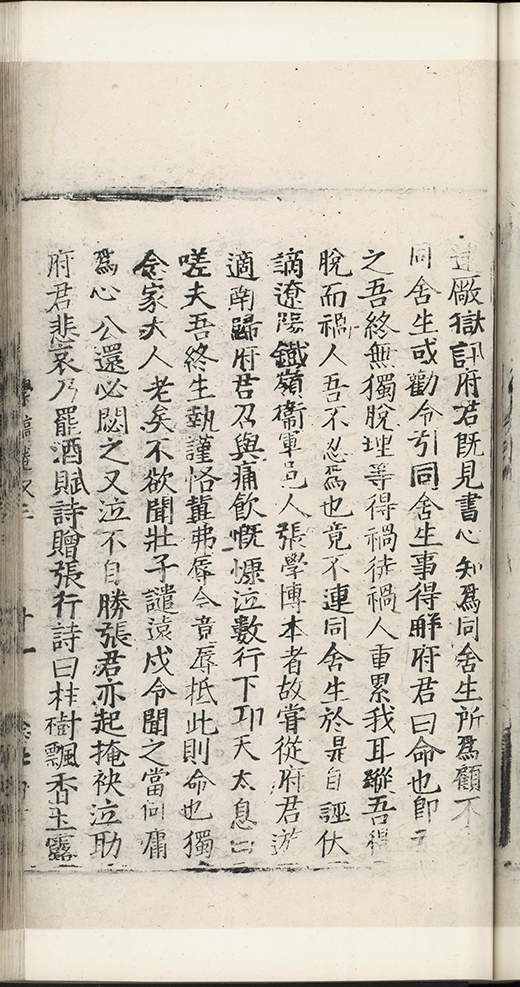 逮儆獄訊府君既見書心知為同舍生所為顧不
同舍生或勸令引同舍生事得解府君曰命也即
之吾終無獨脫理等得禍徒禍人重累我耳蹤吾得
脫而禍人吾不忍為也竟不連同舍生於是自誣伏
謫遼陽鐵嶺衛軍邑人張學博本者故嘗從府君遊
適南歸府君召與痛飲慨慷泣數行下卬天太息曰
嗟夫吾終生執謹恪冀弗辱今竟辱抵此則命也獨
念家大人老矣不欲聞壯子譴遠戍今聞之當何庸
為心公還必閟之又泣不自勝張君亦起掩袂泣助
府君悲哀乃罷酒賦詩贈張行詩曰桂樹飄香玉露